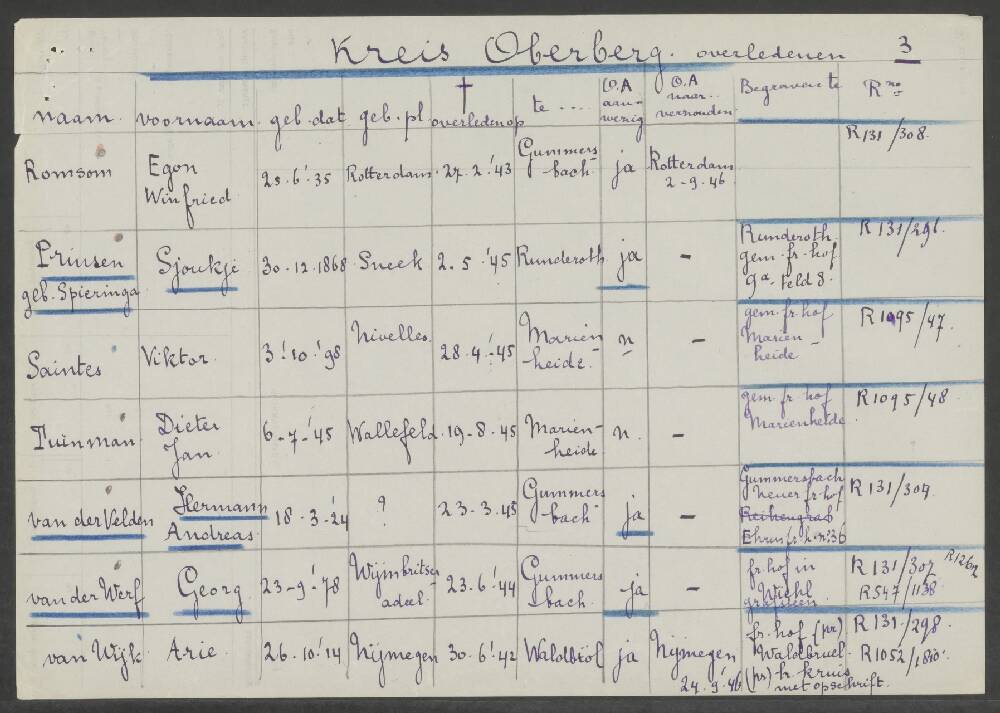 Kreis Oberberg. overledenen 3
naam. voornaam. geb. dat. geb. pl. † overleden op te .... O.A aanwezig O.A naar verzonden Begraven te R no
Romsom Egon Winfried 25.6.'35 Rotterdam. 27.2.'43 Gummersbach ja Rotterdam 2-9.46 R131/308.
Prinsen geb. Spieringa Sjoukje 30.12.1868 Sneek 2.5.'45 Runderoth ja - Runderoth gem. fr. hof 9a. Feld 8. R131/291.
Saintes Viktor. 3.'10.'98 Nivelles. 28.4.'45 Marienheide. n - gem. fr. hof Marienheide R1095/47.
Tuinman Dieter Jan 6-7-'45 Wallefeld. 19-8.45 Marienheide n. - gem. fr. hof Marienheide R1095/48
van der Velden Hermann Andreas 18.3.'24 ? 23-3.45 Gummersbach ja - Gummersbach neuer fr. hof Reihengrab Ehrenfr.h. no. 36 R131/304.
van der Werf Georg 23-9.'78 Wijmbritseradeel. 23.6.'44 Gummersbach. ja - fr. hof in Wiehl grafsteen R131/307 R547/1138
van Wijk Arie. 26.10.'14 Nijmegen 30.6.'42 Waldbröl ja Nijmegen 24.9.'46 fr. hof (pr) Waldbruel (pr) h. kruis met opschrift. R131/298. R1052/1810.